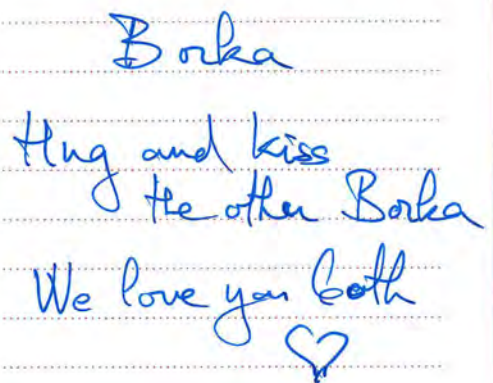 Borka
Hug and kiss
the other Borka
We love you both
♡